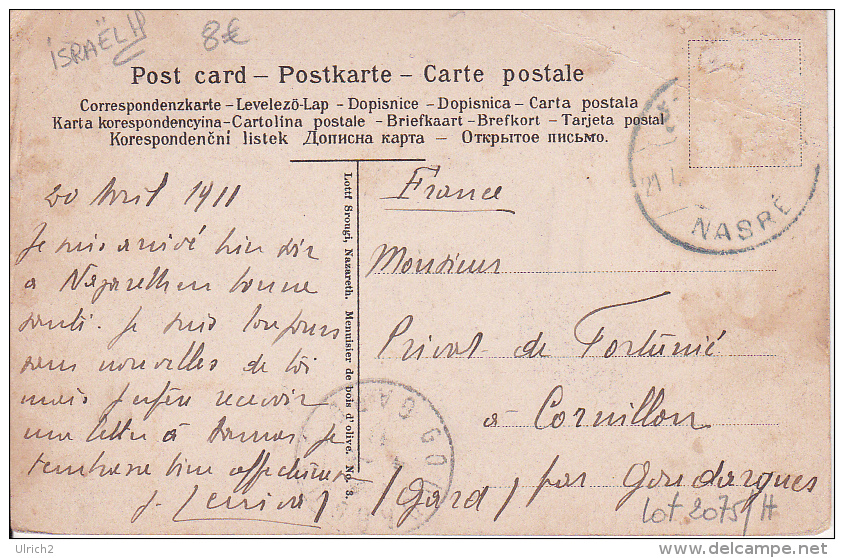 ISRAËL H
8€
Post card – Postkarte – Carte postale
Correspondenzkarte – Levelezö-Lap – Dopisnice – Dopisnica – Carta postala
Karta korespondencyina – Cartolina postale – Briefkaart – Brefkort – Tarjeta postal
Korespondenční listek Дописна карта – Открытое письмо.
NASRÉ
20 Avril 1911
Je suis arrivé hier soir
a Nazareth en bonne
santé. Je suis toujours
sans nouvelles de toi
mais j'espère recevoir
une lettre à Damas. Je
t'embrasse bien
Lottf Srougi, Nazareth. Menuisier de bois d'olive. No. 3.
France
Monsieur
Privat de Fortunié
à Cornillon
(Gard) par Goudargues
GARD
Lot 2075/H
Ulrich2
delcampe.net